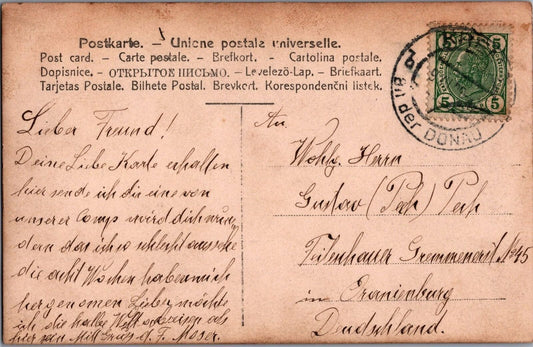 Postkarte. — Unione postale universelle.
Post card. — Carte postale. — Brefkort. — Cartolina postale.
Dopisnice. — ОТКРЫТОЕ ПИСЬМО. — Levelező-Lap. — Briefkaart.
Tarjetas Postale. Bilhete Postal. Brevkort. Korespondenční listek.
5 5
5 5
an der DONAU
Lieber Freund!
Deine Liebe Karte erhalten
hier sende ich dir eine von
unserer Comp wird dich
dern das ich so schlecht aussehe
die acht Wochen haben mich
hergenomen Lieber möchte
ich die halbe Welt als
hier sein Mit Gruß d. F. Moser.
An
Wohlg. Herrn
Gustav (Pech) Pech
No 45
in Oranienburg
Deutschland.